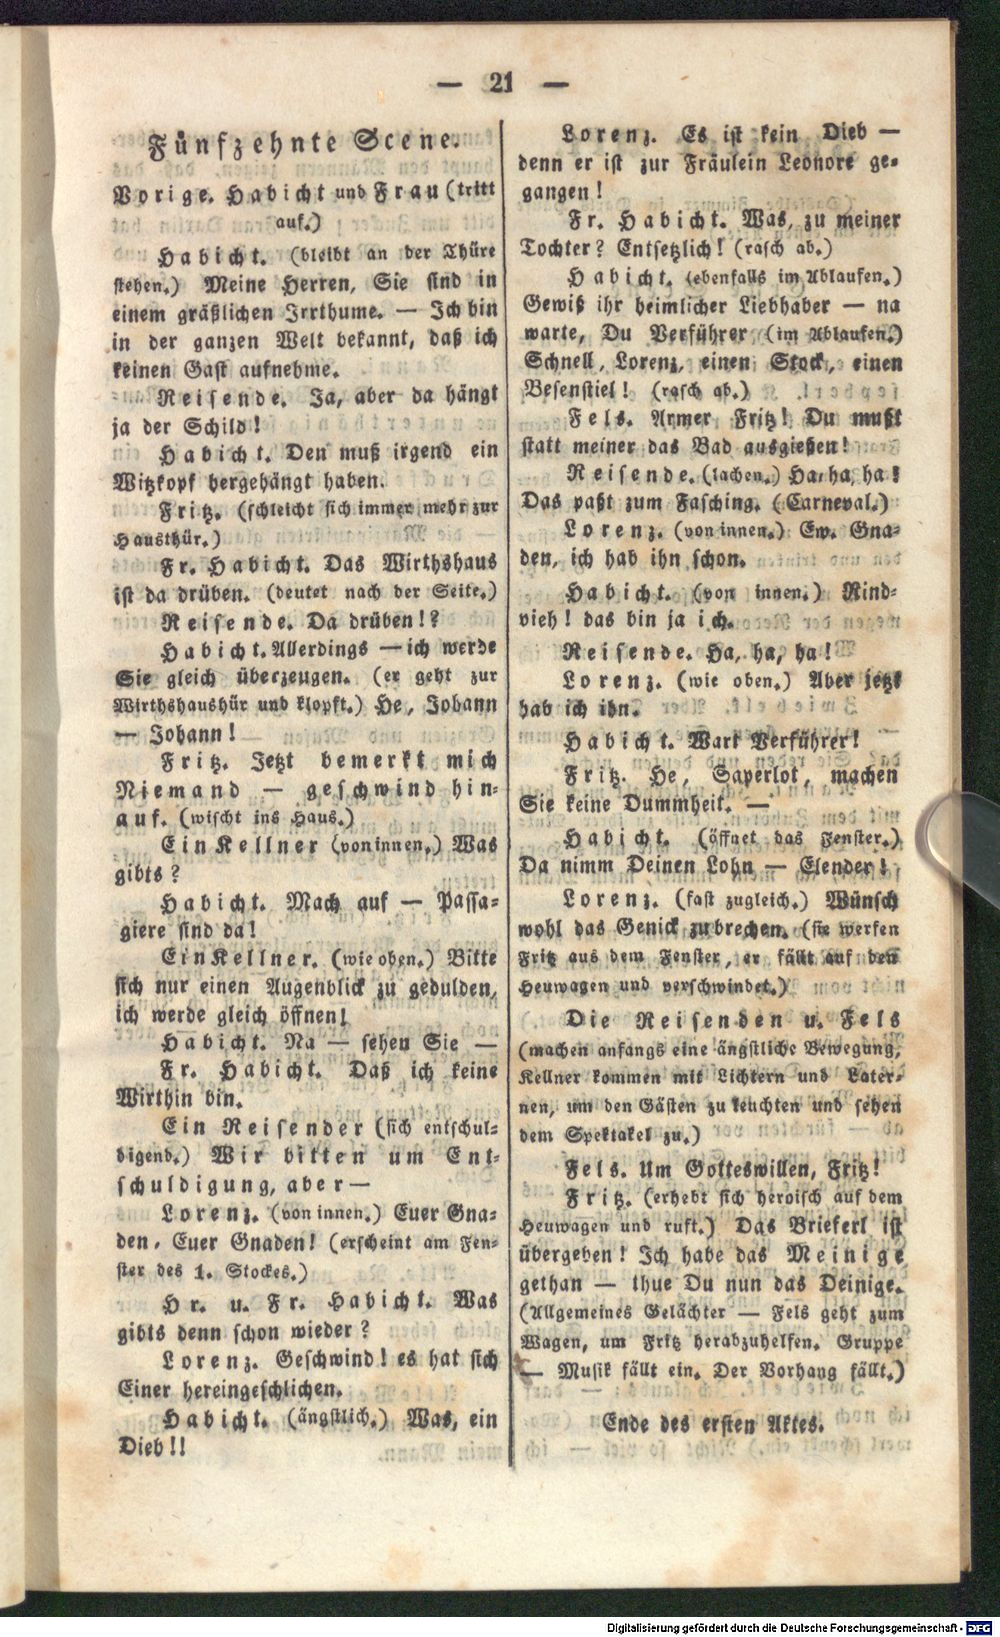 — 21 —
Fünfzehnte Scene.
Vorige. Habicht und Frau (tritt
auf.)
Habicht. (bleibt an der Thüre
stehen.) Meine Herren, Sie sind in
einem gräßlichen Irrthume. — Ich bin
in der ganzen Welt bekannt, daß ich
keinen Gast aufnehme.
Reisende. Ja, aber da hängt
ja der Schild!
Habicht. Den muß irgend ein
Witzkopf hergehängt haben.
Fritz. (schleicht sich immer mehr zur
Hausthür.)
Fr. Habicht. Das Wirthshaus
ist da drüben. (deutet nach der Seite.)
Reisende. Da drüben!?
Habicht. Allerdings — ich werde
Sie gleich überzeugen. (er geht zur
Wirthshausthür und klopft.) He, Johann
— Johann!
Fritz. Jetzt bemerkt mich
Niemand — geschwind hin-
auf. (wischt ins Haus.)
Ein Kellner (von innen.) Was
gibts?
Habicht. Mach auf — Passa-
giere sind da!
Ein Kellner. (wie oben.) Bitte
sich nur einen Augenblick zu gedulden,
ich werde gleich öffnen!
Habicht. Na — sehen Sie —
Fr. Habicht. Daß ich keine
Wirthin bin.
Ein Reisender (sich entschul-
digend.) Wir bitten um Ent-
schuldigung, aber —
Lorenz. (von innen.) Euer Gna-
den, Euer Gnaden! (erscheint am Fen-
ster des 1. Stockes.)
Hr. u. Fr. Habicht. Was
gibts denn schon wieder?
Lorenz. Geschwind! es hat sich
Einer hereingeschlichen.
Habicht. (ängstlich.) Was, ein
Dieb!!
Lorenz. Es ist kein Dieb —
denn er ist zur Fräulein Leonore ge-
gangen!
Fr. Habicht. Was, zu meiner
Tochter? Entsetzlich! (rasch ab.)
Habicht. (ebenfalls im Ablaufen.)
Gewiß ihr heimlicher Liebhaber — na
warte, Du Verführer (im Ablaufen.)
Schnell, Lorenz, einen Stock, einen
Besenstiel! (rasch ab.)
Fels. Armer Fritz! Du mußt
statt meiner das Bad ausgießen!
Reisende. (lachen.) Ha, ha, ha!
Das paßt zum Fasching. (Carneval.)
Lorenz. (von innen.) Ew. Gna-
den, ich hab ihn schon.
Habicht. (von innen.) Rind-
vieh! das bin ja ich.
Reisende. Ha, ha, ha!
Lorenz. (wie oben.) Aber jetzt
hab ich ihn.
Habicht. Wart Verführer!
Fritz. He, Saperlot, machen
Sie keine Dummheit. —
Habicht. (öffnet das Fenster.)
Da nimm Deinen Lohn — Elender!
Lorenz. (fast zugleich.) Wünsch
wohl das Genick zu brechen. (sie werfen
Fritz aus dem Fenster, er fällt auf den
Heuwagen und verschwindet.)
Die Reisenden u. Fels
(machen anfangs eine ängstliche Bewegung,
Kellner kommen mit Lichtern und Later-
nen, um den Gästen zu leuchten und sehen
dem Spektakel zu.)
Fels. Um Gotteswillen, Fritz!
Fritz. (erhebt sich heroisch auf dem
Heuwagen und ruft.) Das Brieferl ist
übergeben! Ich habe das Meinige
gethan — thue Du nun das Deinige.
(Allgemeines Gelächter — Fels geht zum
Wagen, um Fritz herabzuhelfen. Gruppe
— Musik fällt ein. Der Vorhang fällt.)
Ende des ersten Aktes.
Digitalisierung gefördert durch die Deutsche Forschungsgemeinschaft - DFG